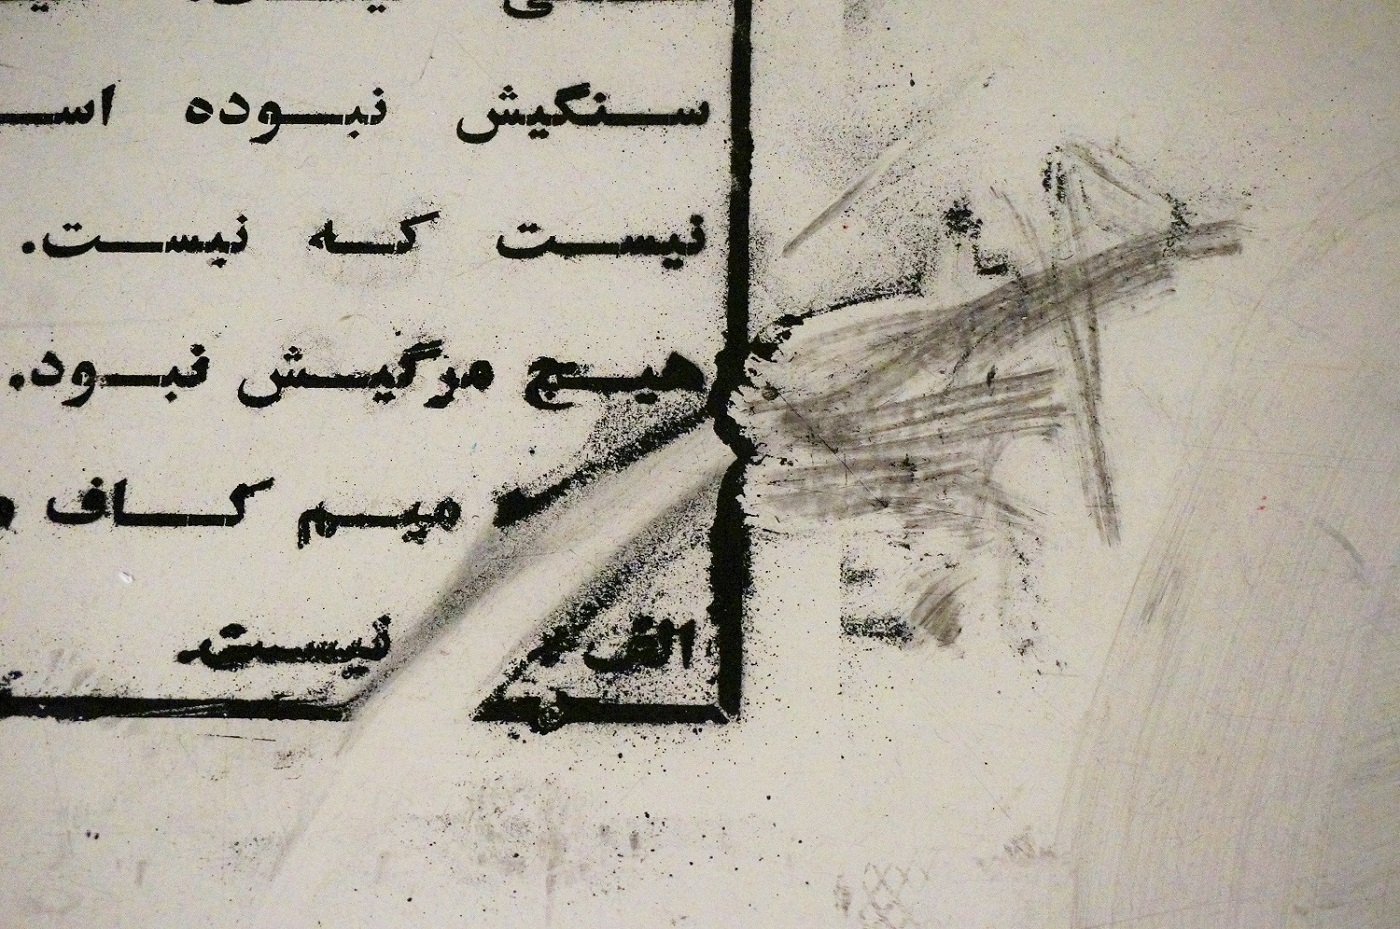 سنگیش نبوده اسـ
نیست که نیست.
هیچ مرگیش نبود.
میم کاف م
الف نیست.